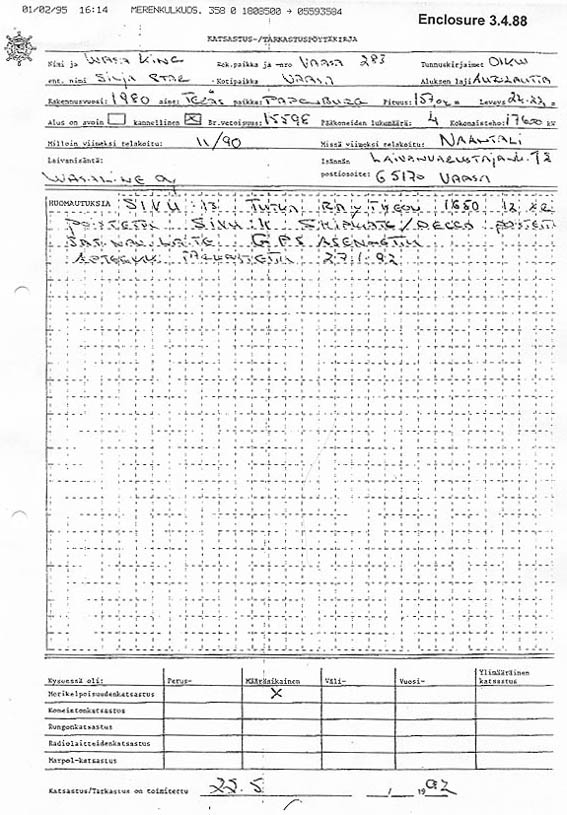 01/02/95 16:14 MERENKULKUOS. 358 0 1808500 → 05593584
Enclosure 3.4.88
KATSASTUS-/TARKASTUSPÖYTÄKIRJA
Nimi ja WASA KING Rek.paikka ja -nro VAASA 283 Tunnuskirjaimet OIKW
ent. nimi SILJA STAR Kotipaikka VAASA Aluksen laji AUTOLAUTTA
Rakennusvuosi: 1980 aine: TERÄS paikka: PAPENBURG Pituus: Leveys
Alus on avoin kannellinen X Br.vetoisuus: 15598 Pääkoneiden lukumäärä: 4 Kokonaisteho: 17650 kW
Milloin viimeksi telakoitu: 11/90 Missä viimeksi telakoitu: NAANTALI
Laivanisäntä: Isännän LAIVANVARUSTAJANK. 72
WASALINE OY postiosoite: 65170 VAASA
HUOMAUTUKSIA SIVU 13 TUTKA RAYTHEON 1650 12 XR
POISTETTU SIVU 14 SHIPMATE/DECCA POISTETTU
SATNAV LAITE GPS ASENNETTU
APTEEKKI TARKASTETTU 27.1.92
Kyseessä oli: Perus- Määräaikainen Väli- Vuosi- Ylimääräinen katsastus
Merikelpoisuudenkatsastus X
Koneistonkatsastus
Rungonkatsastus
Radiolaitteidenkatsastus
Marpol-katsastus
Katsastus/Tarkastus on toimitettu 25.5 / 1992